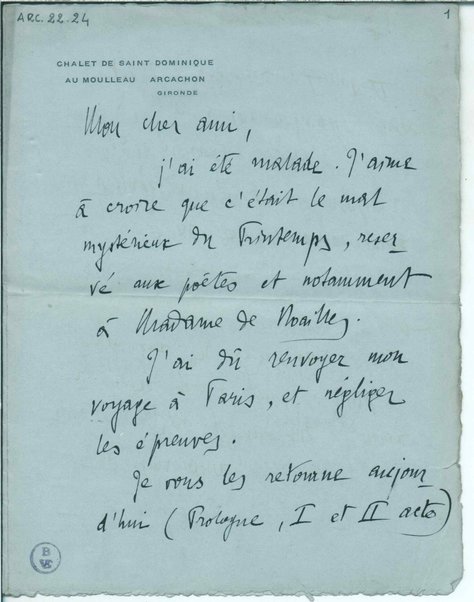 ARC. 22-24
1
CHALET DE SAINT DOMINIQUE
AU MOULLEAU ARCACHON
GIRONDE
Mon cher ami,
j'ai été malade. J'aime
à croire que c'était le mal
mystérieux du Printemps, reser
vé aux poëtes et notamment
à Madame de Noailles.
J'ai dû renvoyer mon
voyage à Paris, et négliger
les épreuves.
Je vous les retourne aujour
d'hui (Prologue, I et II actes)